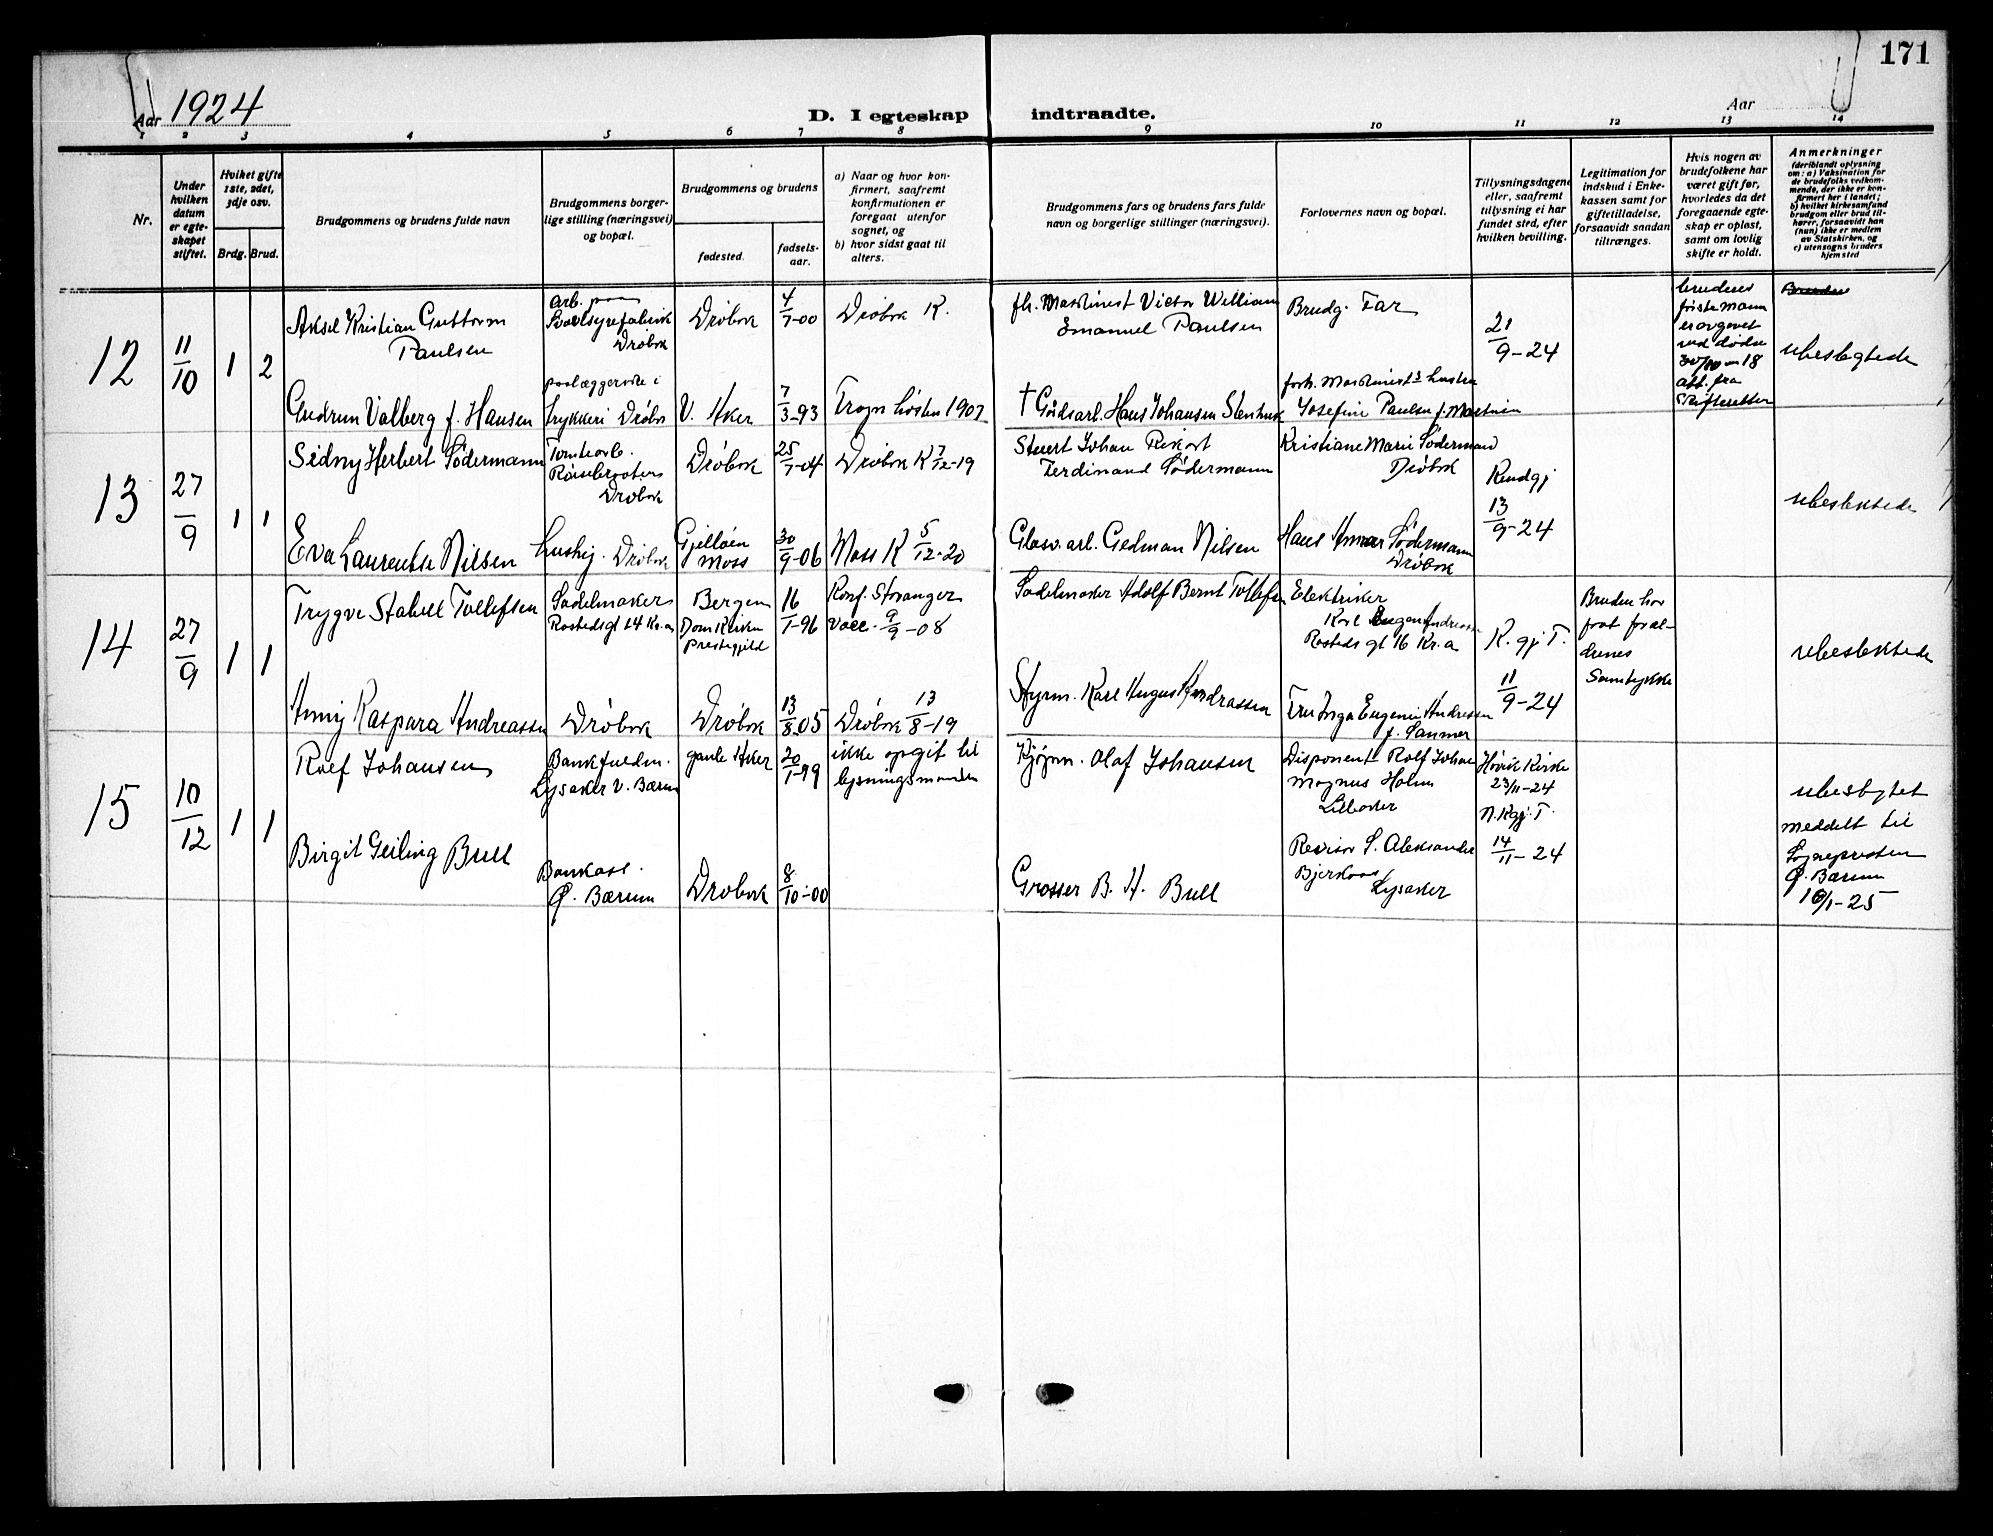 171
Aar 1924
D. I egteskap indtraadte.
Aar
1 2 3 4 5 6 7 8 9 10 11 12 13 14
Nr.
Under
hvilken
datum
er egte-
skapet
stiftet.
Hvilket gifte
1ste, 2det,
3dje osv.
Brdg. Brud.
Brudgommens og brudens fulde navn
Brudgommens borger-
lige stilling (næringsvei)
og bopæl.
Brudgommens og brudens
fødested.
fødsels-
aar.
a) Naar og hvor kon-
firmert, saafremt
konfirmationen er
foregaat utenfor
sognet, og
b) hvor sidst gaat til
alters.
Brudgommens fars og brudens fars fulde
navn og borgerlige stillinger (næringsvei).
Forlovernes navn og bopæl.
Tillysningsdagene
eller, saafremt
tillysning ei har
fundet sted, efter
hvilken bevilling.
Legitimation for
indskud i Enke-
kassen samt for
giftetilladelse,
forsaavidt saadan
tiltrænges.
Hvis nogen av
brudefolkene har
været gift før,
hvorledes da det
foregaaende egte-
skap er opløst,
samt om lovlig
skifte er holdt.
Anmerkninger
(deriblandt oplysning
om: a) Vaksination for
de brudefolks vedkom-
mende, der ikke er kon-
firmert her i landet;
b) hvilket kirkesamfund
brudgom eller brud til-
hører, forsaavidt han
(hun) ikke er medlem
av Statskirken, og
c) utensogns bruders
hjemsted
12
11/10
1 2
Aksel Kristian Guttorm
Paulsen
arb. paa
Svovlsyrefabrik
Drøbak
Drøbak
4/7-00
Drøbak K.
fh. Maskinist Victor William
Emanuel Paulsen
Brudg. Far
21/9-24
brudens
første mann
er avgaaet
ved døden
30/10-18
att. fra
Skifteretten
ubeslegtede
Gudrun Valberg f. Hansen
paalæggerske i
trykkeri Drøbak
V. Aker
7/3-93
Trogn høsten 1907
† Gårdsarb. Hans Johansen
forh. Maskinist's hustru
Josefine Paulsen f.
13
27/9
1 1
Sidny Herbert Södermann
Tomtearb.
Drøbak
Drøbak
25/7-04
Drøbak K 7/12-19
Stuert Johan Rikart
Ferdinand Södermann
Kristiane Marie Södermann
Drøbak
Kundgj
13/9-24
ubeslektede
Eva Laurentse Nilsen
hushj. Drøbak
Gjelløen
Moss
30/9-06
Moss K 5/12-20
Glasv. arb. Gedman Nilsen
Hans Södermann
Drøbak
14
27/9
1 1
Trygve Stabell Tollefsen
Sadelmaker
Rostedsgt 14 Kr.a
Bergen
Domkirken
Prestegjeld
16/1-96
Konf. Stavanger
Vacc. 9/9-08
Sadelmaker Adolf Bernt Tollefsen
Elektriker
Karl Eugen Andreassen
Rosteds gt 16 Kr.a
K. gj T.
11/9-24
Bruden har
faat foræl-
drenes
Samtykke
ubeslektede
Anny Kaspara Andreassen
Drøbak
Drøbak
13/8.05
Drøbak 13/8-19
Styrm. Karl August Andreassen
Fru Inga Eugenie Andresen
f. Sanner
15
10/12
1 1
Rolf Johansen
Bankfuldm.
Lysaker V. Bærum
gamle Aker
20/1-99
ikke opgit til
lysningsmanden
Kjøpm. Olaf Johansen
Disponent Rolf Johan
Magnus Holm
Lilleaker
Høvik Kirke
23/11-24
N. Kgj. T.
14/11-24
ubeslegtet
meddelt til
Sognepresten
Ø. Bærum
16/1-25
Birgit Geiling Bull
Bankass.
Ø. Bærum
Drøbak
8/10-00
Grosser B. H. Bull
Revisor S. Aleksander
Bjerkaas
Lysaker